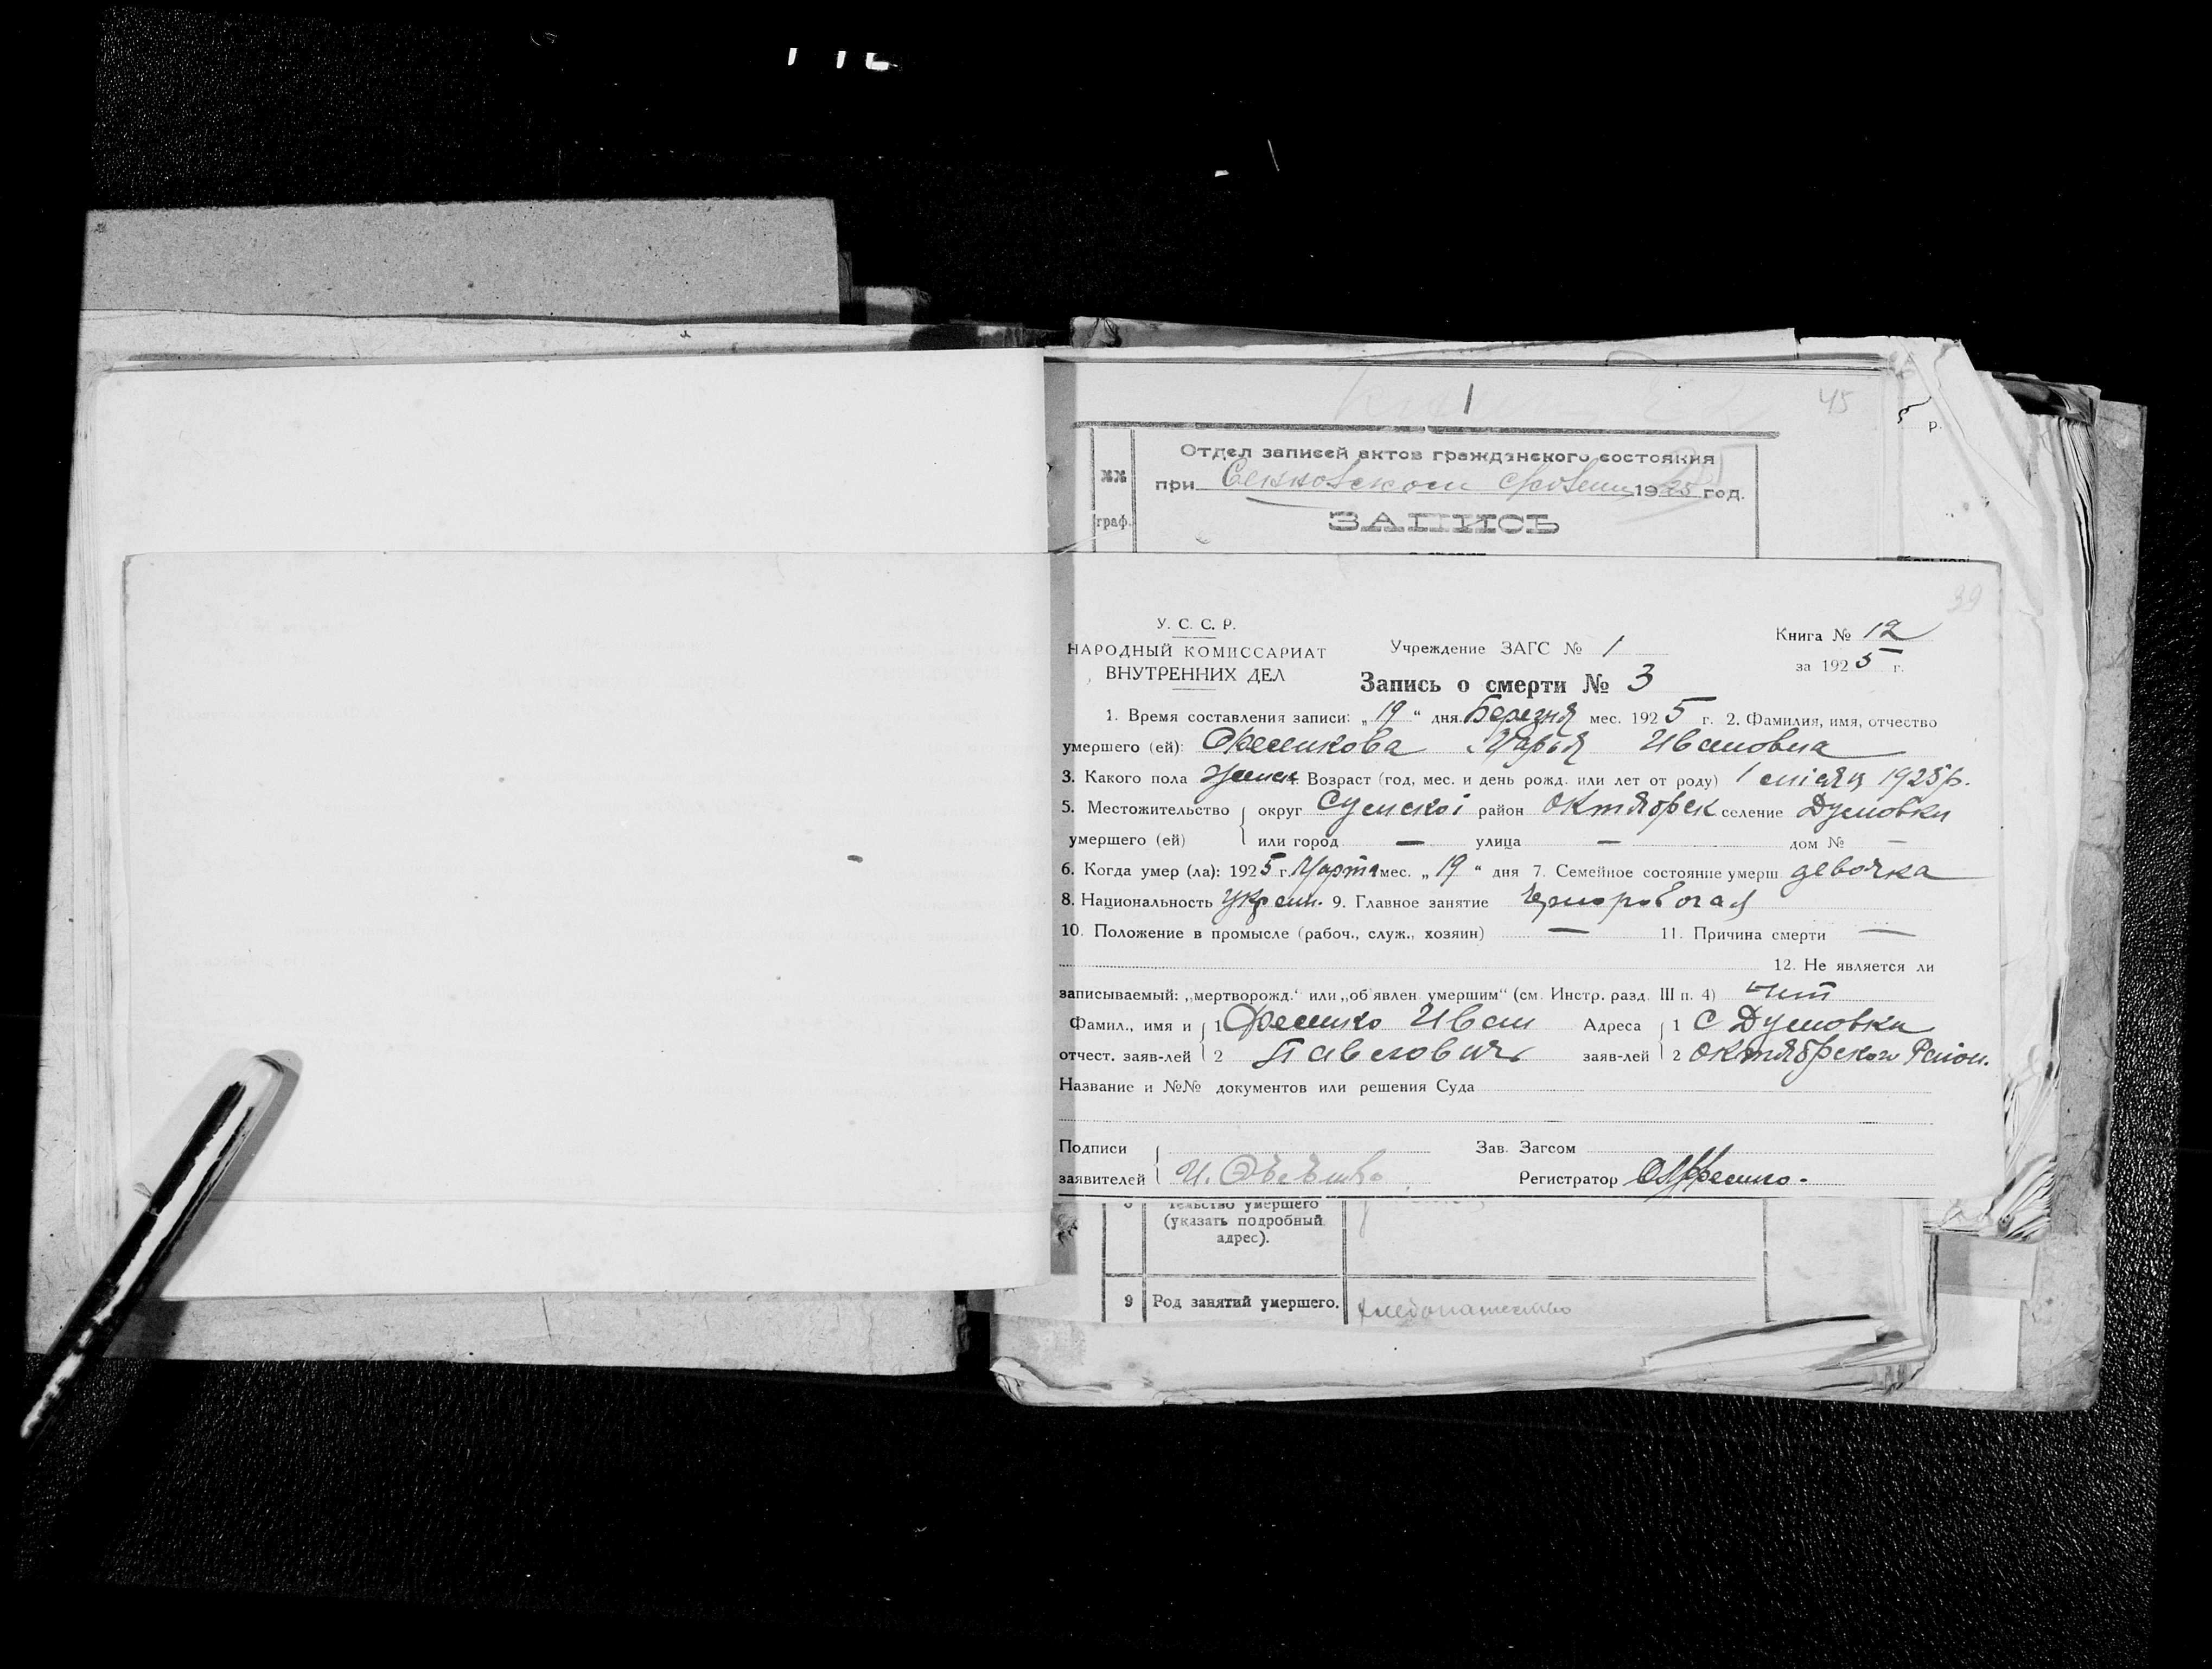 45
Отдел записей актов гражданского состояния
при 1925 год.
ЗАПИСЬ
граф.
39
У. С. С. Р.
НАРОДНЫЙ КОМИССАРИАТ
ВНУТРЕННИХ ДЕЛ
Учреждение ЗАГС № 1
Книга № 12
за 1925 г.
Запись о смерти № 3
1. Время составления записи: „19“ дня Березня мес. 1925 г. 2. Фамилия, имя, отчество
умершего (ей): Фесикова Марья Ивановна
3. Какого пола женск Возраст (год, мес. и день рожд. или лет от роду) 1 1925 р.
5. Местожительство округ Сумскоі район Октябрск селение Думовки
умершего (ей) или город — улица — дом № —
6. Когда умер (ла): 1925 г. Марта мес. „19“ дня 7. Семейное состояние умерш. девочка
8. Национальность Украин. 9. Главное занятие
10. Положение в промысле (рабоч., служ., хозяин) — 11. Причина смерти —
12. Не является ли
записываемый: „мертворожд.‘ или „об‘явлен умершим“ (см. Инстр. разд. III п. 4) нит
Фамил., имя и 1 Иван Адреса 1 С Думовки
отчест. заяв-лей 2 Павлович заяв-лей 2 Октябрского Район.
Название и №№ документов или решения Суда
Подписи Зав. Загсом
заявителей И. Регистратор
тельство умершего
(указать подробный
адрес).
9 Род занятий умершего. хлебопашество